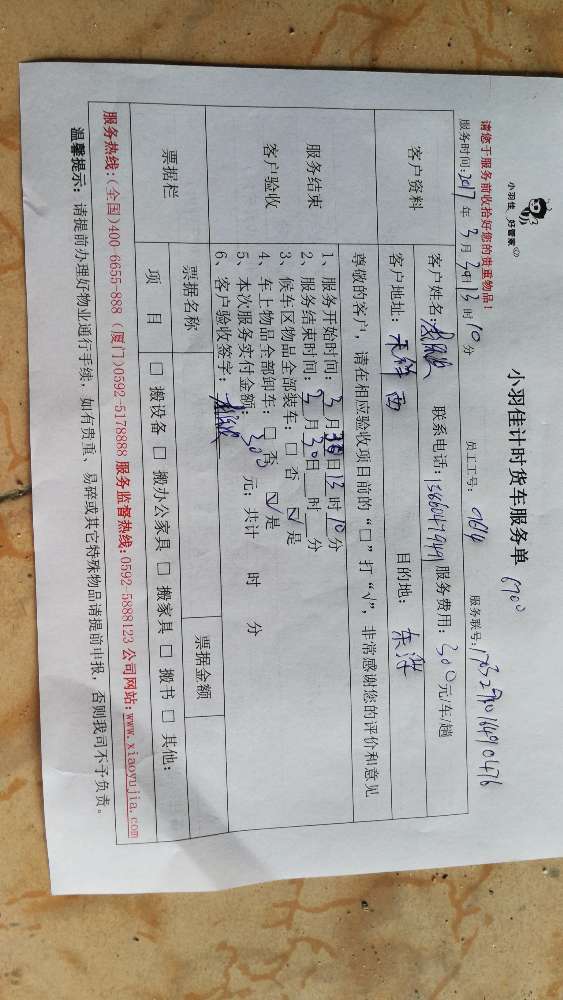 小羽佳 好管家
小羽佳计时货车服务单
6900
请您于服务前收拾好您的贵重物品！
服务时间:2017年3月30日13时10分 员工工号: 9614 服务联号:
客户资料
客户姓名: 联系电话: 服务费用:300元/车/趟
客户地址: 西 目的地:
服务结束
客户验收
尊敬的客户，请在相应验收项目前的“□”打“√”，非常感谢您的评价和意见
1、服务开始时间:3月30日13时10分
2、服务结束时间:3月30日 时 分
3、候车区物品全部装车:□ 否 ☑ 是
4、车上物品全部卸车:□ 否 ☑ 是
5、本次服务实付金额: 300 元；共计 时 分
6、客户验收签字:
票据栏
票据名称 票据金额
项 目 □ 搬设备 □ 搬办公家具 □ 搬家具 □ 搬书 □ 其他:
服务热线:(全国)400-6655-888 (厦门)0592-5178888 服务监督热线:0592-5888123 公司网站:www.xiaoyujia.com
温馨提示: 请提前办理好物业通行手续，如有贵重、易碎或其它特殊物品请提前申报，否则我司不予负责。